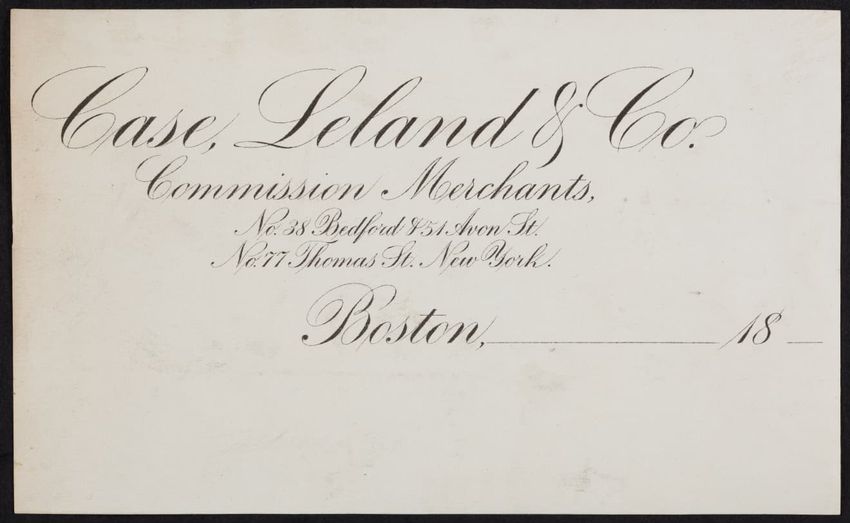 Case, Leland & Co.
Commission Merchants,
No. 38 Bedford & 51 Avon St.
No. 77 Thomas St. New York.
Boston, 18